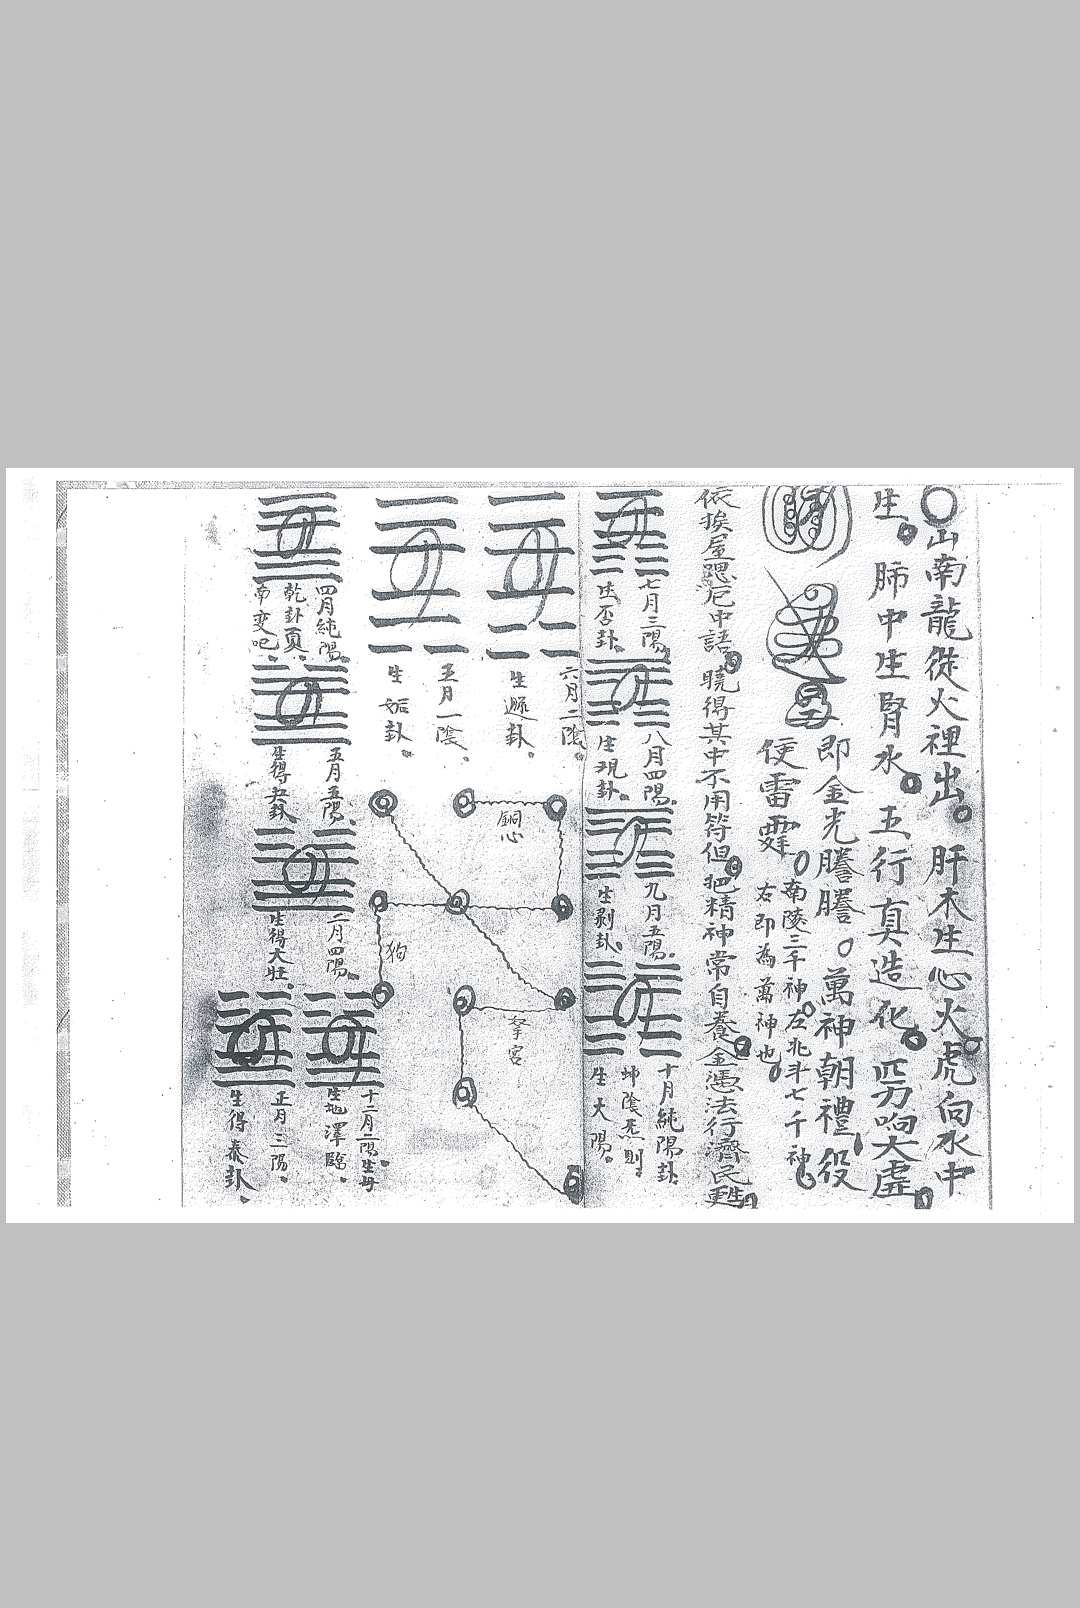 南龍從火裡出肝木生心火虎向水中
生肺中生腎水五行真造化
即金光騰騰萬神朝禮役
使雷霆
南陵三千神左北斗七千神
右即為萬神也
曉得其中不用符但把精神常自養金憑法行濟民
七月三陽
生否卦
八月四陽
生現卦
九月五陽
生剝卦
十月純陽卦
坤陰
生大陽
六月二陰
生遯卦
五月一陰
生姤卦
銅心
狗
四月純陽
乾卦
南变吧
五月五陽
生得夬卦
二月四陽
生得大壯
十二月二陽生丑
生地澤臨
正月三陽
生得泰卦